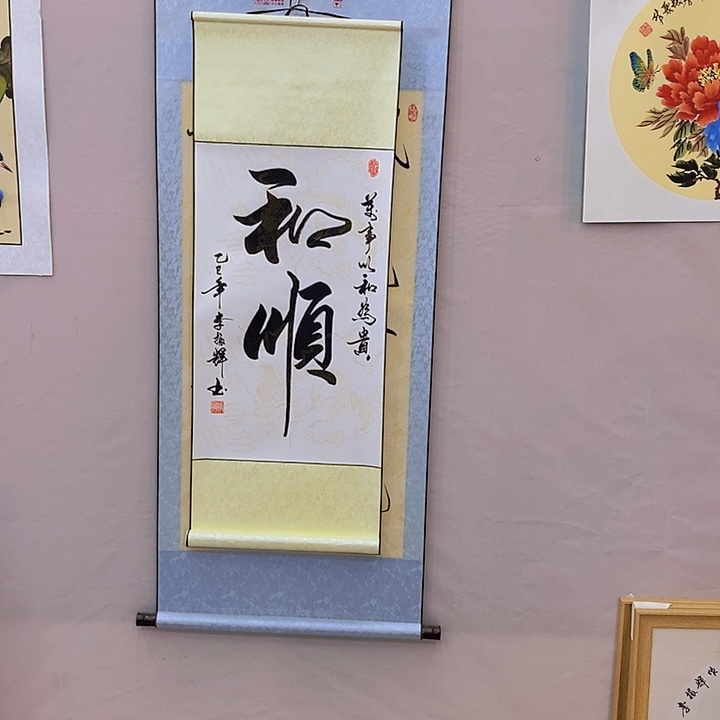 萬事以和為貴
和順
乙巳年李振輝書
李振輝